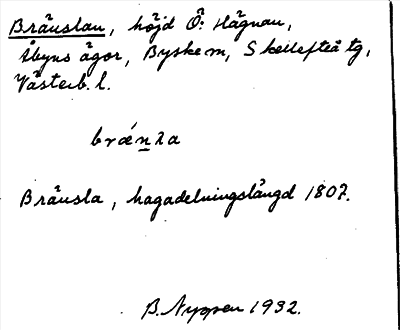 Bränslan, höjd Ö. Hägnan,
Åbyns ägor, Byske m, Skellefteå tg,
Västerb. l.
Bränsla, hagadelningslängd 1807.
B. Nyppen 1932.